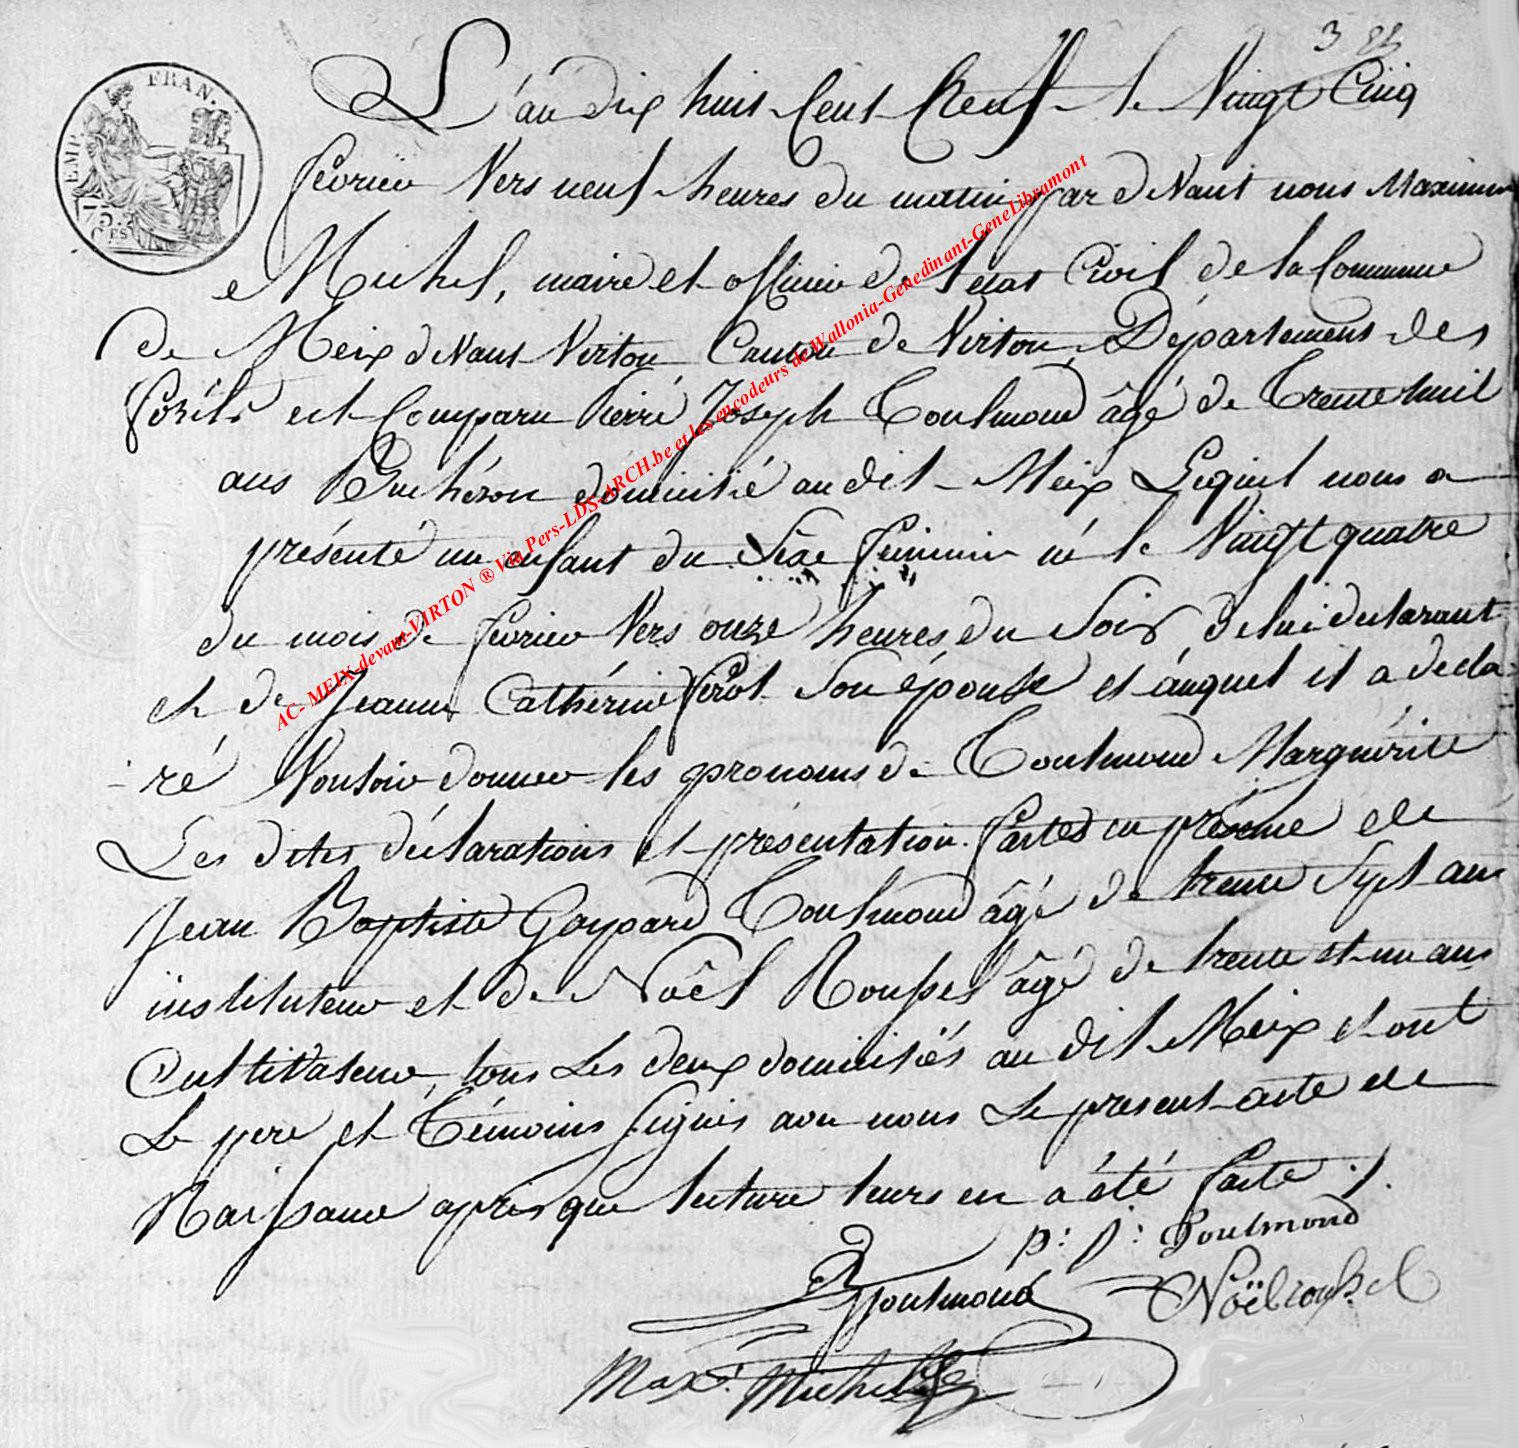 3
EMP. FRAN.
75 C.es
L'an dix huit Cent Neuf le Vingt Cinq
fevrier Vers neuf heures du matin par dVant nous Maximin
Michel, maire et officier de l'etat Civil de la Commune
de Meix dVant Virton Canton de Virton, Département des
forêts est Comparu Pierré Joseph Toulmond âgé de Trente huit
ans Bucheron domicilié au dit Meix Lequel nous a
présenté un enfant du Sexe feminin né le Vingt quatre
du mois de fevrier Vers onze heures du Soir de lui declarant
et de Jeanne Cathérine Perot Son épouse et auquel il a decla
-ré Vouloir donner les pronoms de Toulmond Marguérite
Les dites déclarations et présentation faites en présence de
Jean Baptiste Gaspard Toulmond âgé de trente Sept ans
instituteur et de Noêl Roussel âgé de trente et un ans
Cultivateur, tous Les deux domiciliés au dit Meix et ont
Le pere et Témoins Signés avec nous Le present acte de
Naissance apres que lecture leurs en a été faite ./.
p: j: Toulmond
Toulmond Noël roussel
Max: Michel
AC- MEIX-devant-VIRTON ® Via Pers-LDS-ARCH.be et les encodeurs de Wallonia-Genedinant-GeneLibramont